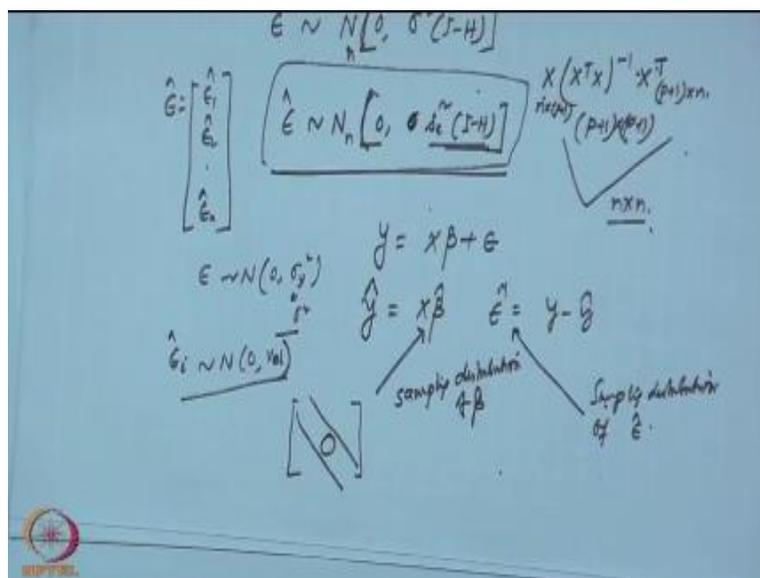 ε ~ N_n[0, σ²(I-H)]
ε̂ = [ε̂₁ ε̂₂ . ε̂ₙ]
ε̂ ~ N_n[0, s_e²(I-H)]
X(XᵀX)⁻¹Xᵀ
n×(p+1) (p+1)×(p+1) (p+1)×n
n×n.
y = xβ + ε
ε ~ N(0, σ_y²)
σ²
ŷ = xβ̂
ε̂ = y - ŷ
ε̂ᵢ ~ N(0, )
[0]
sampling distribution of β̂
Sampling distribution of ε̂.
NPTEL